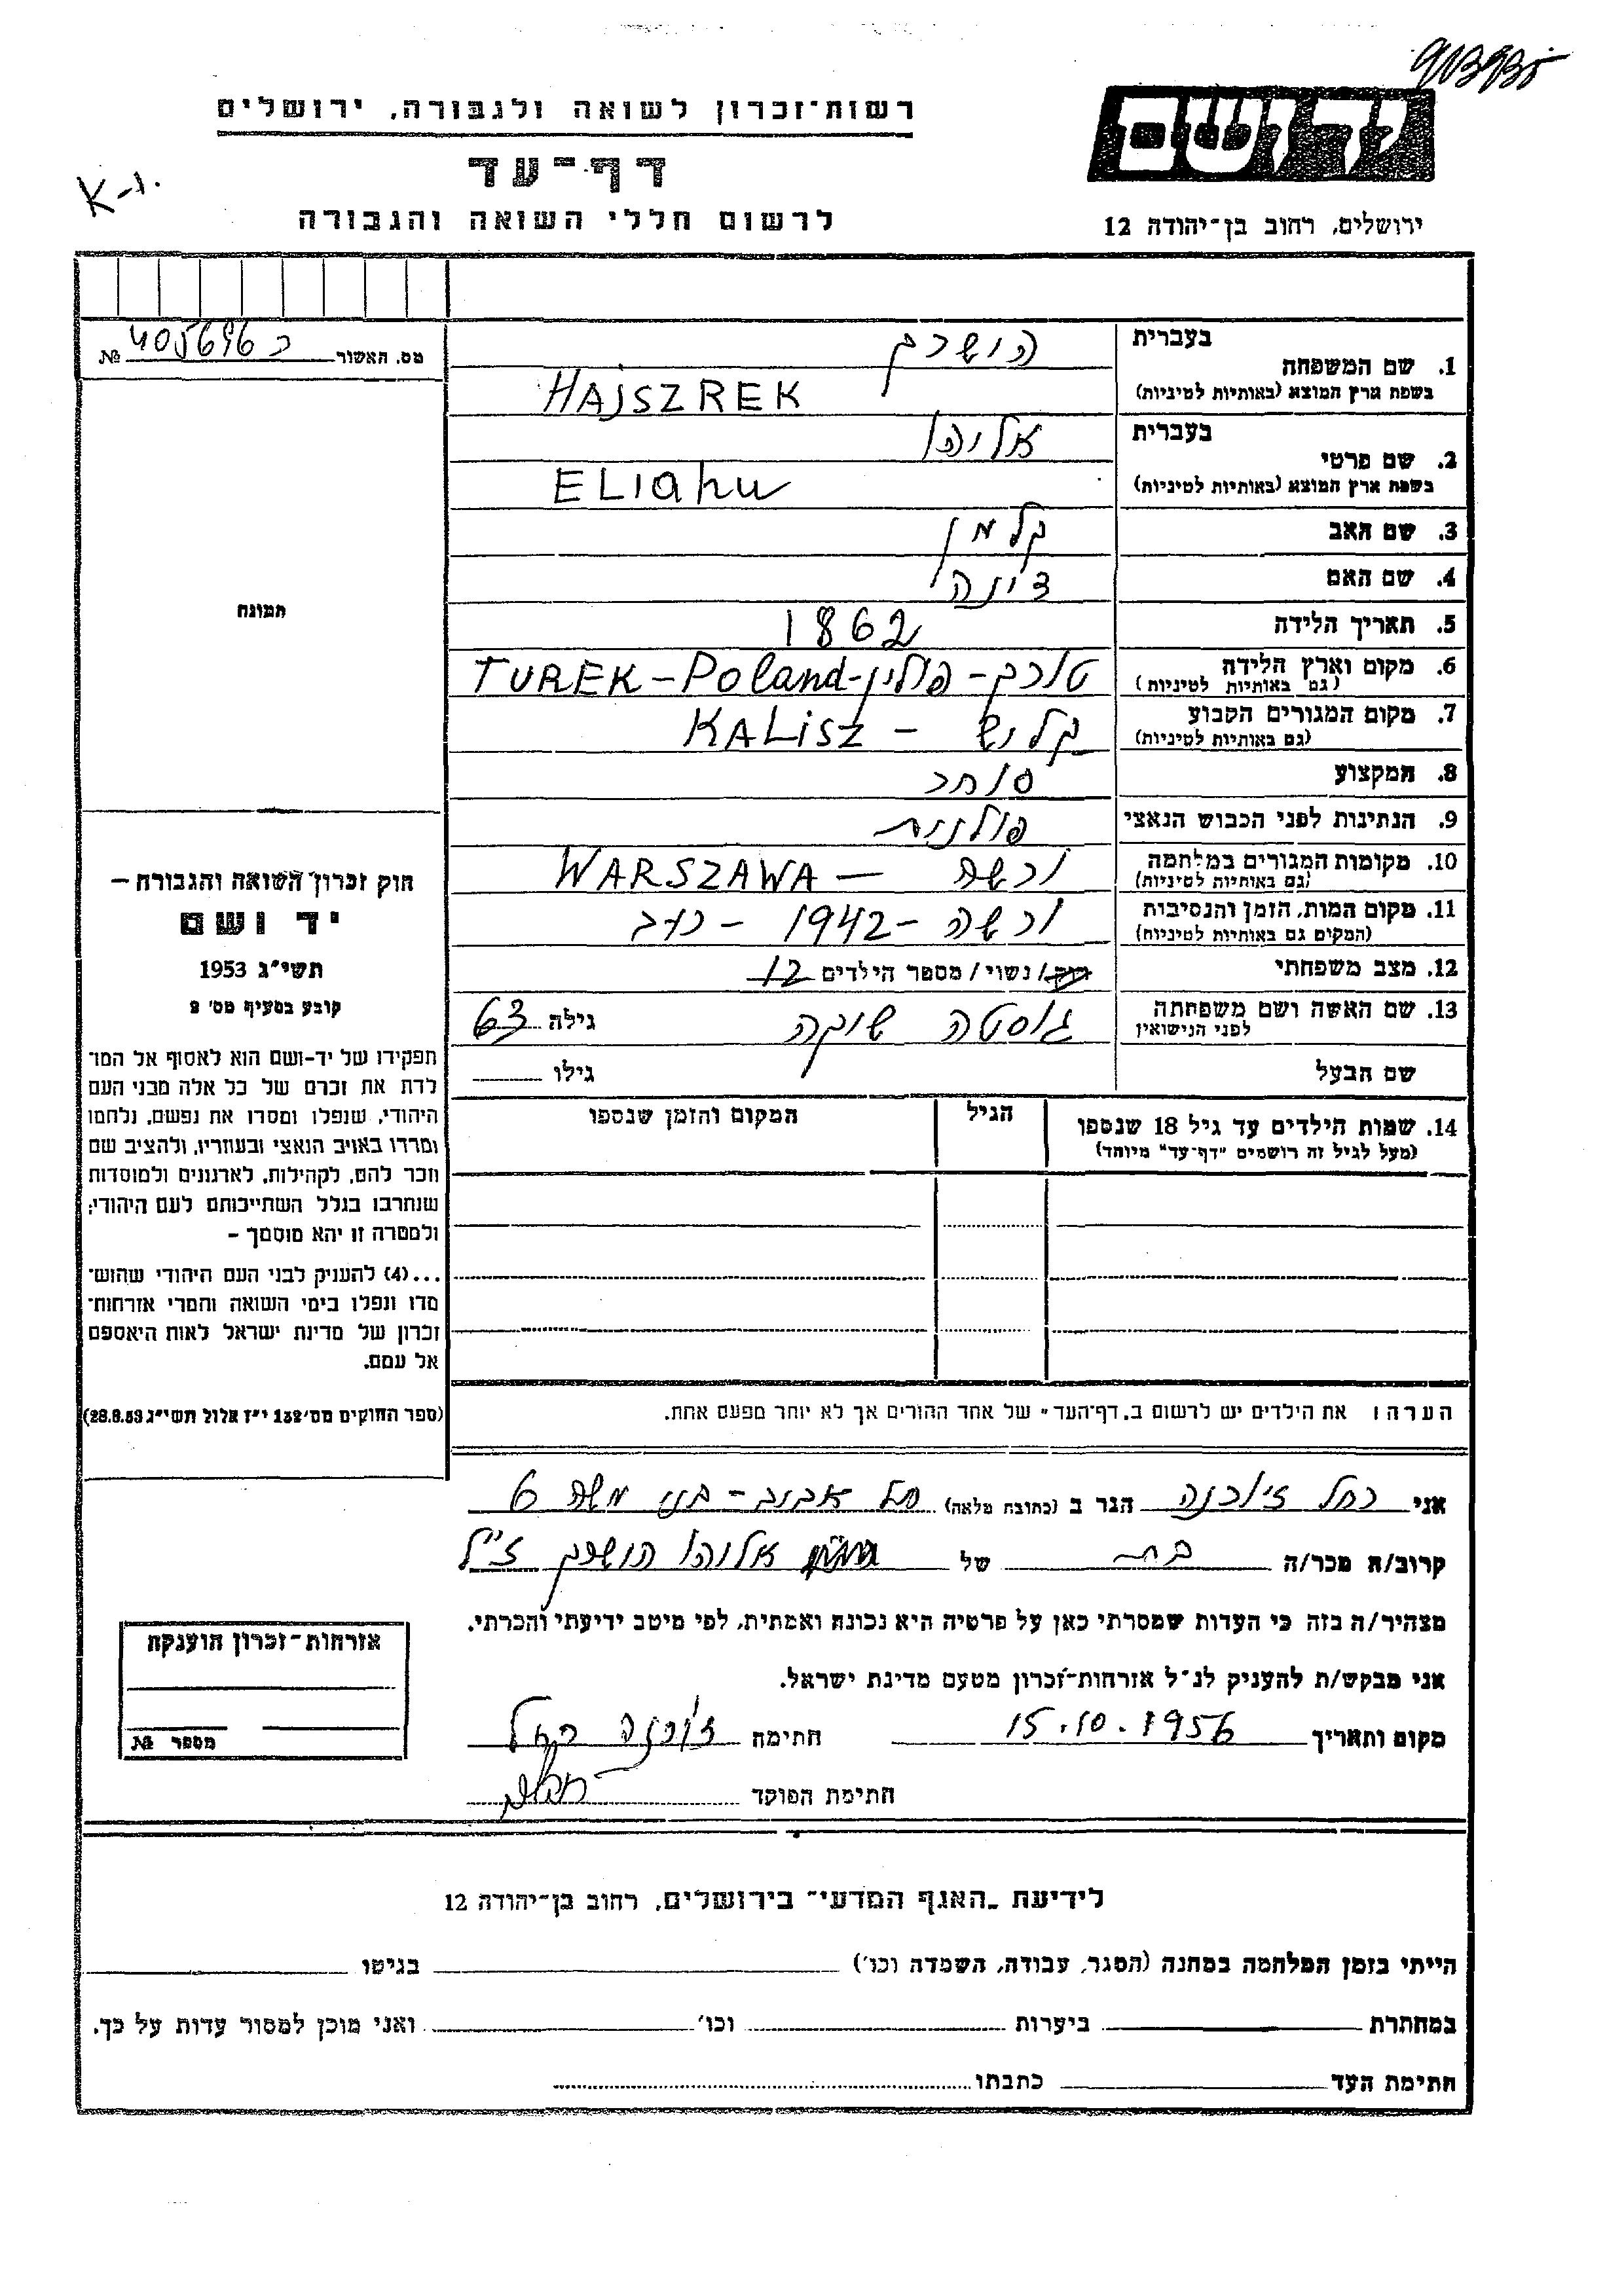 רשות־זכרון לשואה ולגבורה, ירושלים
יד ושם
דף־עד
K-1.
לרשום חללי השואה והגבורה
ירושלים, רחוב בן־יהודה 12
מס. האשור כ 405696 №
תמונה
חוק זכרון השואה והגבורה –
יד ושם
תשי״ג 1953
קובע בסעיף מס׳ 2
תפקידו של יד-ושם הוא לאסוף אל המו־
לדת את זכרם של כל אלה מבני העם
היהודי, שנפלו ומסרו את נפשם, נלחמו
ומרדו באויב הנאצי ובעוזריו, ולהציב שם
וזכר להם, לקהילות, לארגונים ולמוסדות
שנחרבו בגלל השתייכותם לעם היהודי;
ולמטרה זו יהא מוסמך –
...(4) להעניק לבני העם היהודי שהוש־
מדו ונפלו בימי השואה והמרי אזרחות־
זכרון של מדינת ישראל לאות היאספם
אל עמם.
(ספר החוקים מס׳ 132 י״ז אלול תשי״ג 28.8.53)
1. שם המשפחה
בעברית הושרק
בשפת ארץ המוצא (באותיות לטיניות) HAJSZREK
2. שם פרטי
בעברית אליהו
בשפת ארץ המוצא (באותיות לטיניות) ELIahu
3. שם האב קלמן
4. שם האם צינה
5. תאריך הלידה 1862
6. מקום וארץ הלידה (גם באותיות לטיניות) טורק - פולין - TUREK - Poland
7. מקום המגורים הקבוע (גם באותיות לטיניות) קליש - KALISZ
8. המקצוע סוחר
9. הנתינות לפני הכבוש הנאצי פולנית
10. מקומות המגורים במלחמה (גם באותיות לטיניות) ורשה — WARSZAWA
11. מקום המות, הזמן והנסיבות (המקום גם באותיות לטיניות) ורשה - 1942 - רעב
12. מצב משפחתי רווק / נשוי / מספר הילדים 12
13. שם האשה ושם משפחתה לפני הנישואין גוסטה שוקה גילה 63
שם הבעל גילו
14. שמות הילדים עד גיל 18 שנספו הגיל המקום והזמן שנספו
(מעל לגיל זה רושמים "דף־עד" מיוחד)
הערה: את הילדים יש לרשום ב„דף־העד" של אחד ההורים אך לא יותר מפעם אחת.
אני רחל זיורנה הגר ב (כתובת מלאה) תל אביב - בני משה 6
קרוב/ה מכר/ה בת של אליהו הושרק ז״ל
מצהיר/ה בזה כי העדות שמסרתי כאן על פרטיה היא נכונה ואמתית, לפי מיטב ידיעתי והכרתי.
אני מבקש/ת להעניק לנ״ל אזרחות־זכרון מטעם מדינת ישראל.
מקום ותאריך 15.10.1956 חתימה זיורנה רחל
חתימת הפוקד
אזרחות־זכרון הוענקה
מספר №
לידיעת „האגף המדעי" בירושלים, רחוב בן־יהודה 12
הייתי בזמן המלחמה במחנה (הסגר, עבודה, השמדה וכו׳) בגיטו
במחתרת ביערות וכו׳ ואני מוכן למסור עדות על כך.
חתימת העד כתבתו